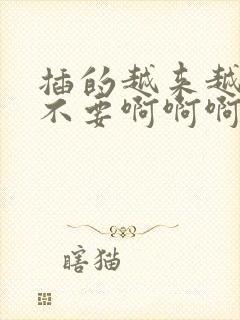 插的越来越
不要啊啊啊
瞎猫